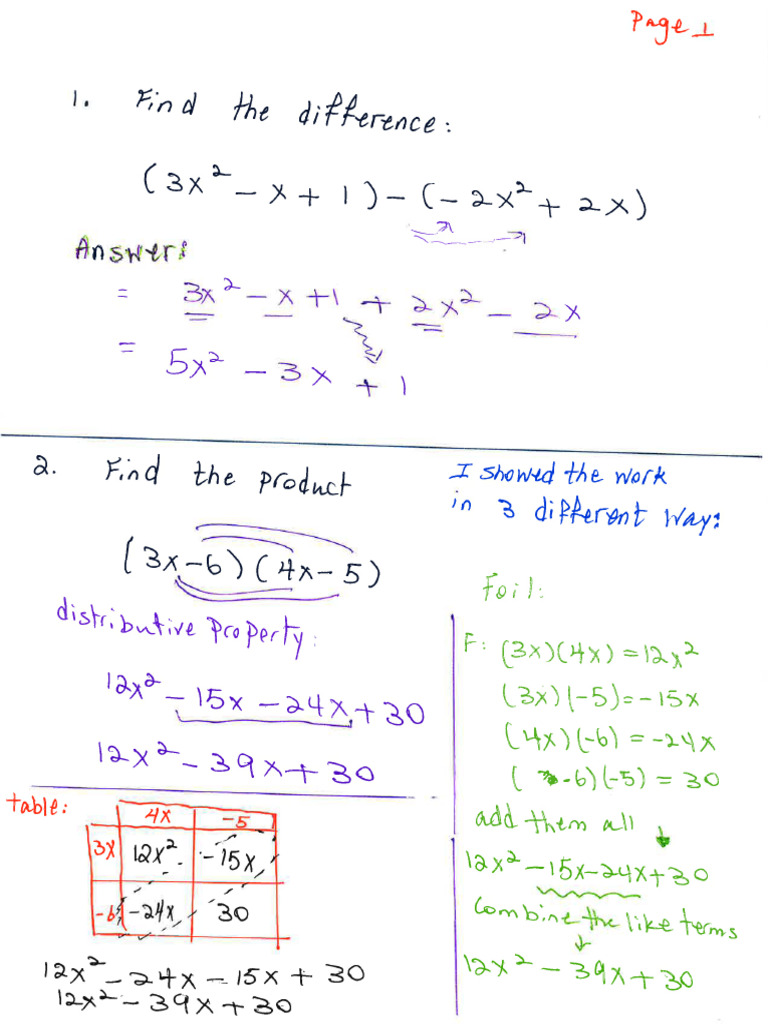 Page 1
1. Find the difference:
(3x² - x + 1) - (-2x² + 2x)
Answer:
= 3x² - x + 1 + 2x² - 2x
= 5x² - 3x + 1
2. Find the product
(3x-6)(4x-5)
distributive property:
12x² - 15x - 24x + 30
12x² - 39x + 30
table:
4x -5
3x 12x² -15x
-6 -24x 30
12x² - 24x - 15x + 30
12x² - 39x + 30
I showed the work
in 3 different way:
Foil:
F: (3x)(4x) = 12x²
(3x)(-5) = -15x
(4x)(-6) = -24x
(-6)(-5) = 30
add them all
12x² - 15x - 24x + 30
Combine the like terms
12x² - 39x + 30